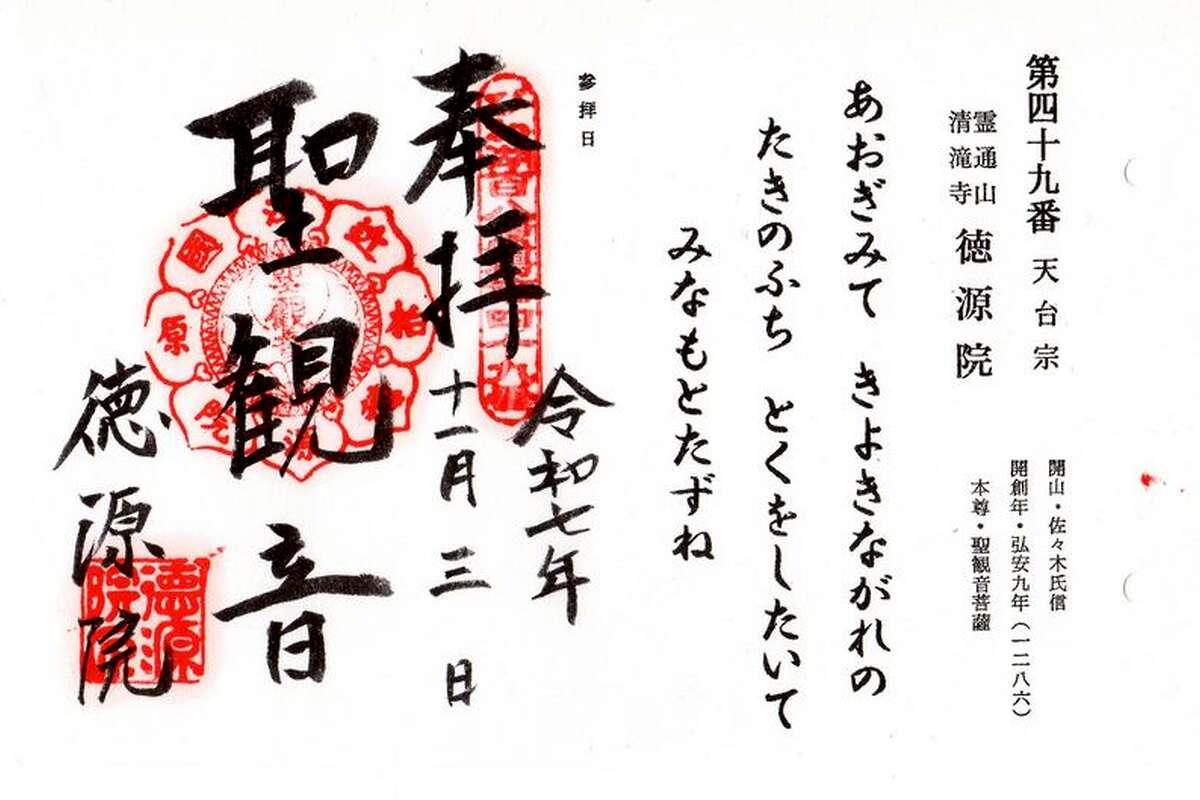 第四十九番 天台宗
霊通山
清滝寺 徳源院
開山・佐々木氏信
開創年・弘安九年(一二八六)
本尊・聖観音菩薩
あおぎみて きよきながれの
たきのふち とくをしたいて
みなもとたずね
参拝日
令和七年
奉拝 十一月 三 日
聖観音
徳源院
徳源院